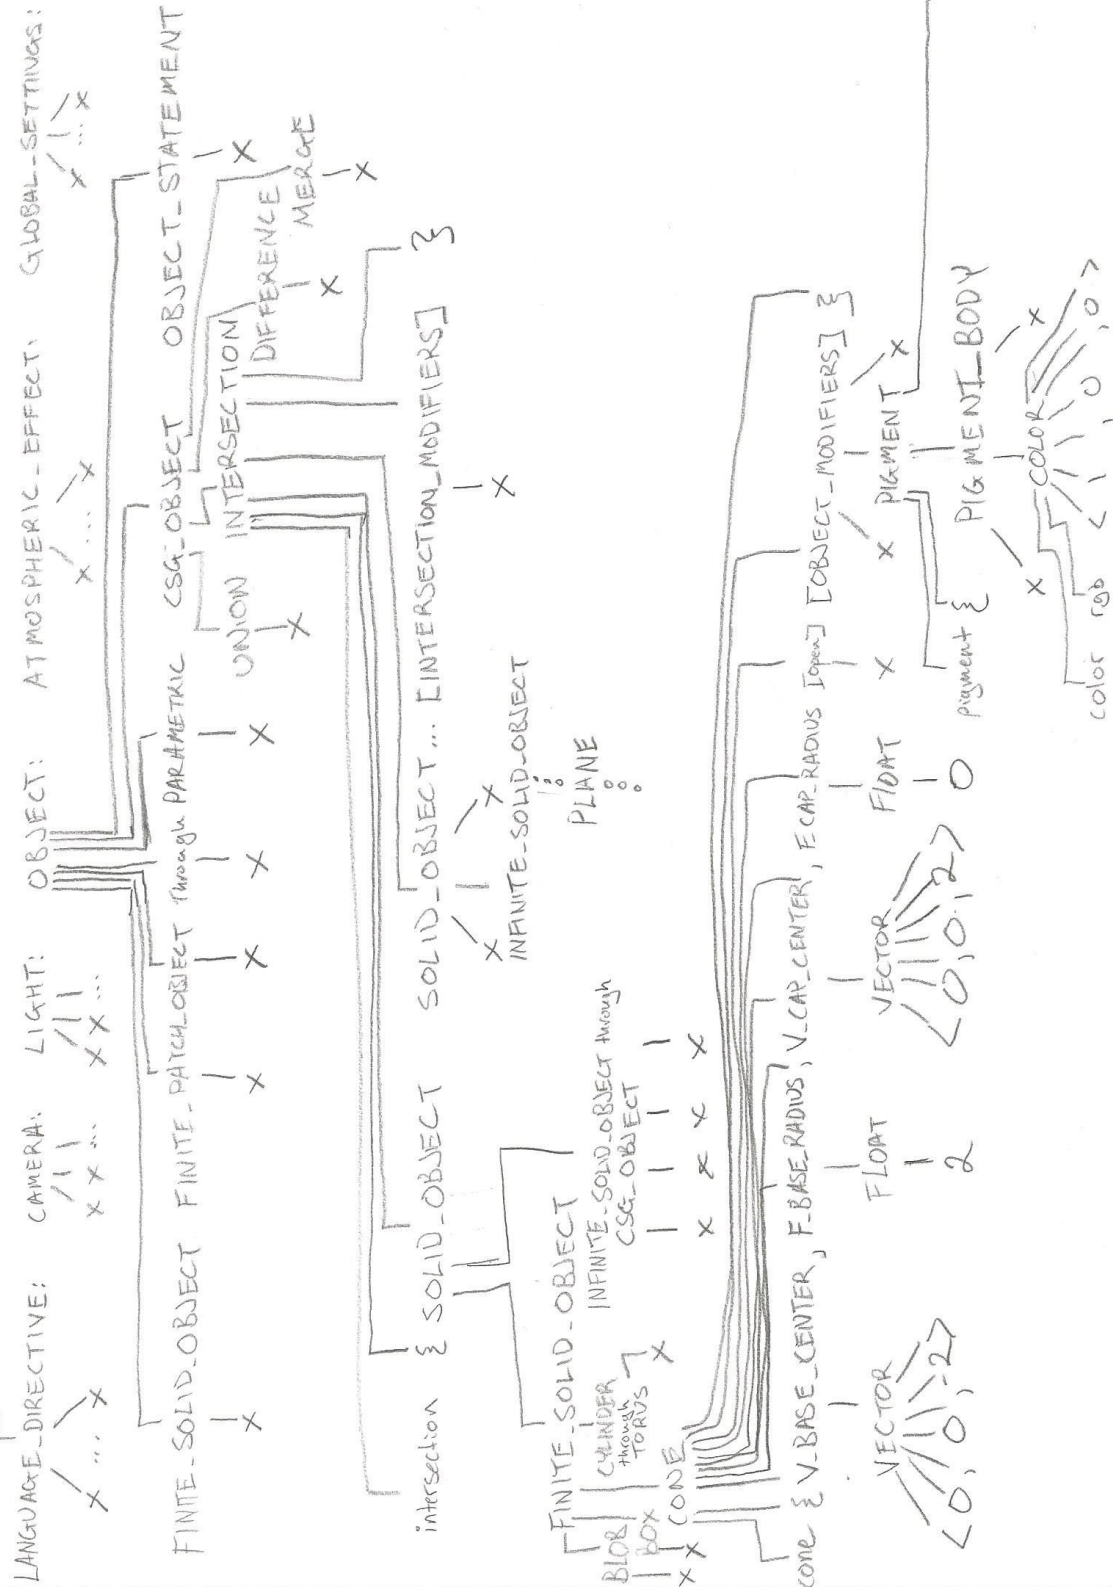 LANGUAGE_DIRECTIVE: CAMERA: LIGHT: OBJECT: ATMOSPHERIC_EFFECT: GLOBAL_SETTINGS:
x ... x x x ... x x ... x ... x x ... x
FINITE_SOLID_OBJECT FINITE_PATCH_OBJECT Through PARAMETRIC CSG_OBJECT OBJECT_STATEMENT
x x x x x x
UNION INTERSECTION DIFFERENCE MERGE
x x x
intersection { SOLID_OBJECT SOLID_OBJECT ... [INTERSECTION_MODIFIERS] }
x
x x
FINITE_SOLID_OBJECT INFINITE_SOLID_OBJECT through CSG_OBJECT
x x x x
INFINITE_SOLID_OBJECT
PLANE
BLOB BOX CONE CYLINDER through TORUS
x x x
cone { V_BASE_CENTER, F_BASE_RADIUS, V_CAP_CENTER, F_CAP_RADIUS [open] [OBJECT_MODIFIERS] }
VECTOR FLOAT VECTOR FLOAT x x PIGMENT x
<0, 0, -2> 2 <0, 0, 2> 0
pigment { PIGMENT_BODY
x COLOR x
color rgb < 1, 0, 0 >